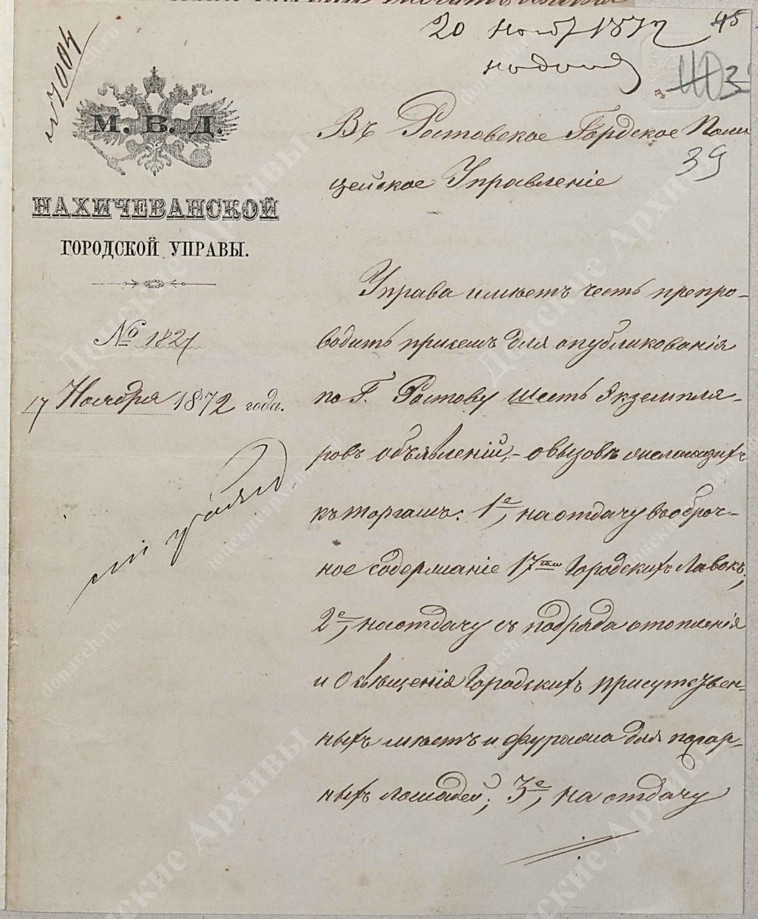 20 нояб 1872
45
№ 7004
39
М. В. Д.
НАХИЧЕВАНСКОЙ
ГОРОДСКОЙ УПРАВЫ.
№ 1821
17 Ноября 1872 года.
Въ Ростовское Гордское Поли
цейское Управленіе
Управа имѣетъ честь препро-
водить присемъ для опубликованія
по Г. Ростову Шесть Экземпля-
ровъ объявленій,- о вызовѣ желающихъ
къ торгамъ: 1е, на отдачу въ оброч-
ное содержаніе 17ти Городскихъ Лавокъ;
2е, на отдачу съ подряда отопленія
и Освѣщенія Городскихъ присутствен-
ныхъ мѣстъ и фуража для пожар-
ныхъ лошадей; 3е, на отдачу